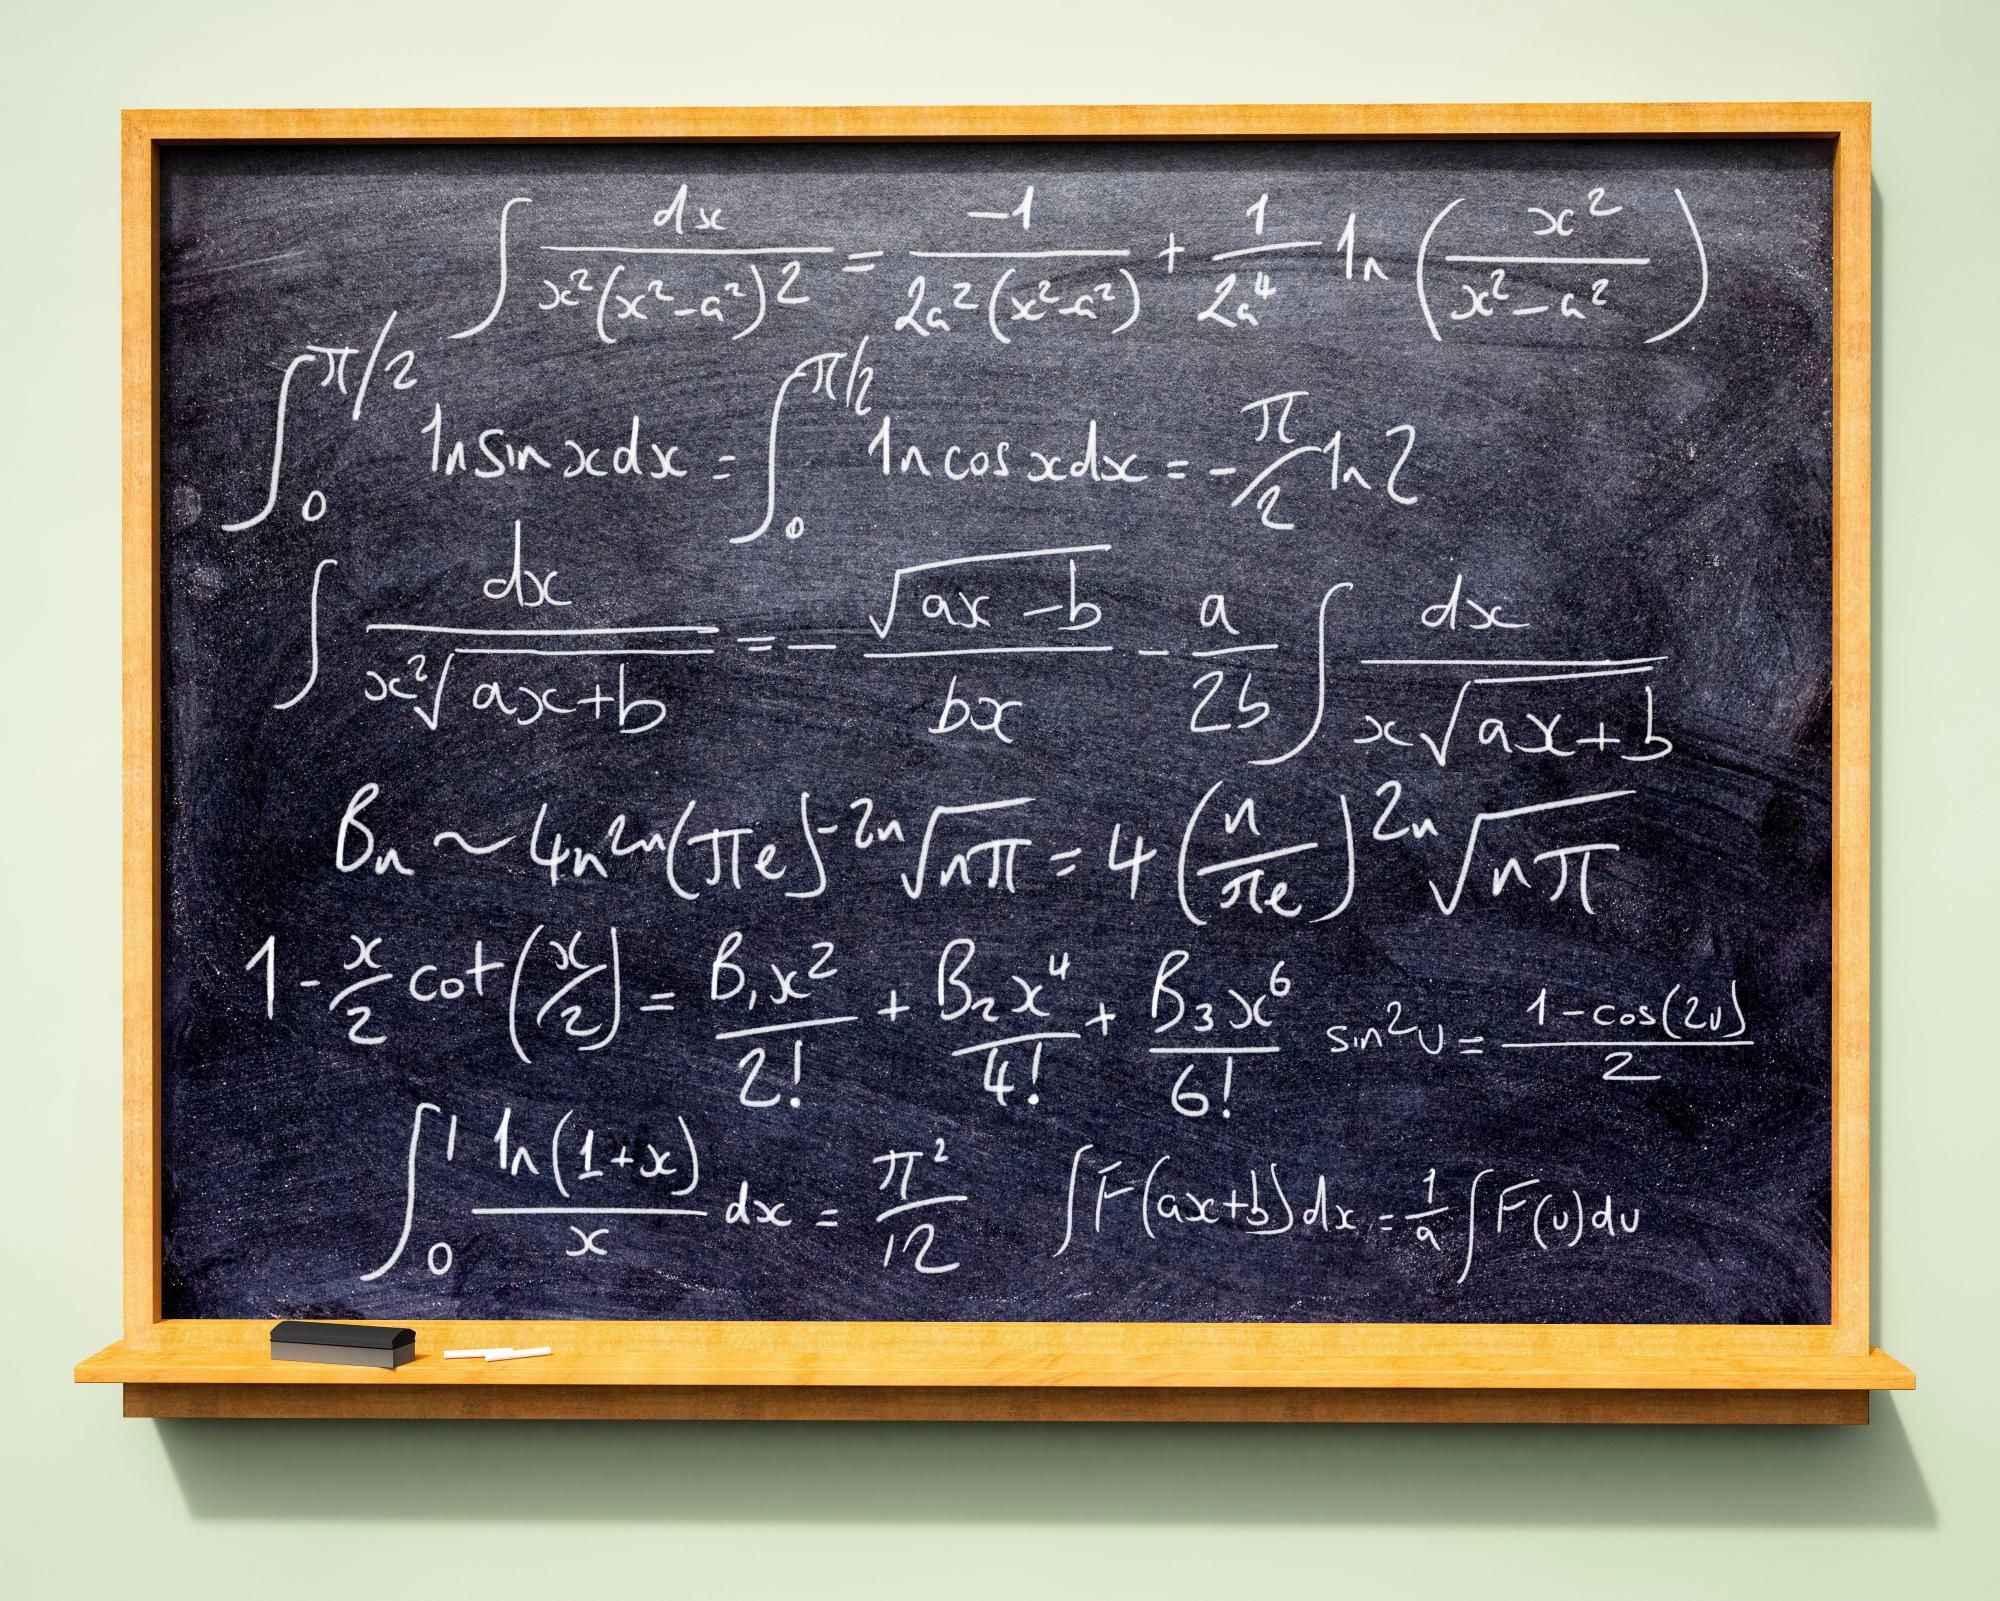 ∫ dx / x²(x²-a²)2 = -1 / 2a²(x²-a²) + 1 / 2a⁴ ln (x² / x²-a²)
∫₀^π/2 ln sin x dx = ∫₀^π/2 ln cos x dx = - π/2 ln 2
∫ dx / x²√(ax+b) = - √(ax-b) / bx - a/2b ∫ dx / x√(ax+b)
Bn ~ 4n²ⁿ(πe)⁻²ⁿ√(nπ) = 4 (n/πe)²ⁿ √(nπ)
1 - x/2 cot (x/2) = B₁x²/2! + B₂x⁴/4! + B₃x⁶/6! sin²u = 1-cos(2u) / 2
∫₀¹ ln(1+x) / x dx = π²/12 ∫F(ax+b)dx = 1/a ∫F(u)du